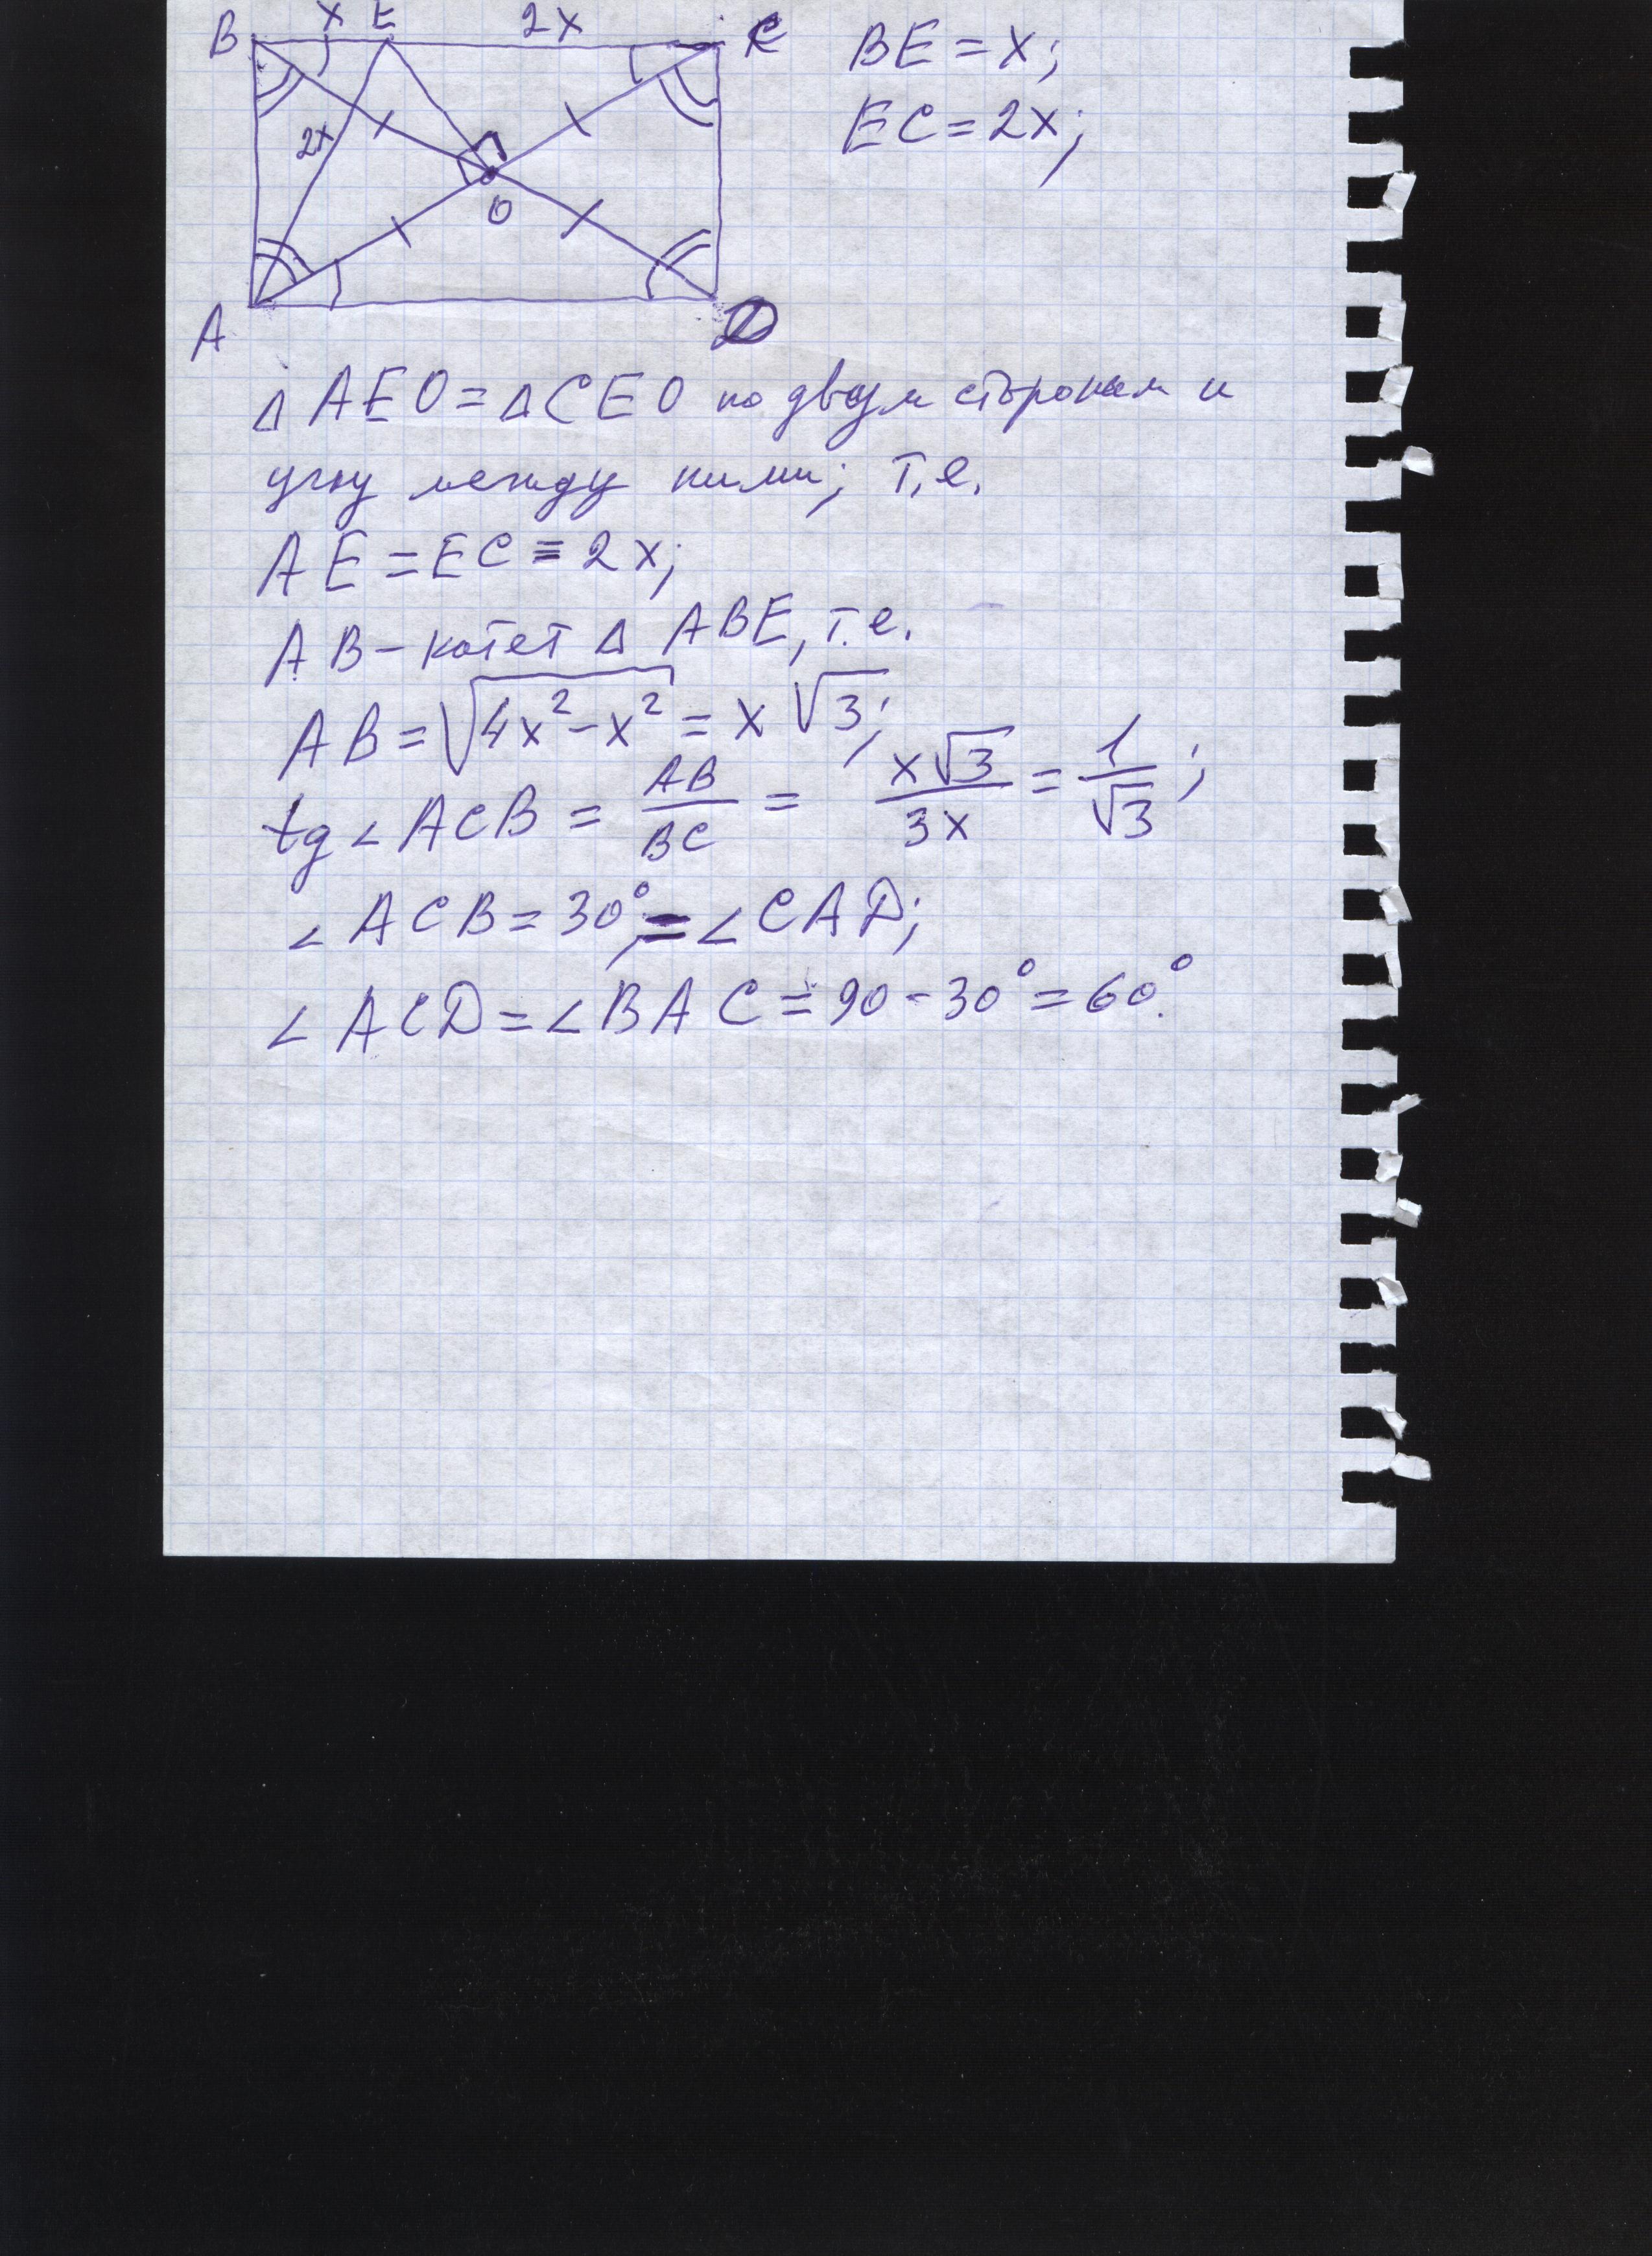 B x E 2x C
BE = x;
EC = 2x;
2x
O
A D
△ AEO = △ CEO по двум сторонам и
углу между ними; т.е.
AE = EC = 2x;
AB – катет △ ABE, т.е.
AB = √(4x² – x²) = x √3;
tg ∠ ACB = AB/BC = x√3/3x = 1/√3;
∠ ACB = 30° = ∠ CAD;
∠ ACD = ∠ BAC = 90 – 30° = 60°.